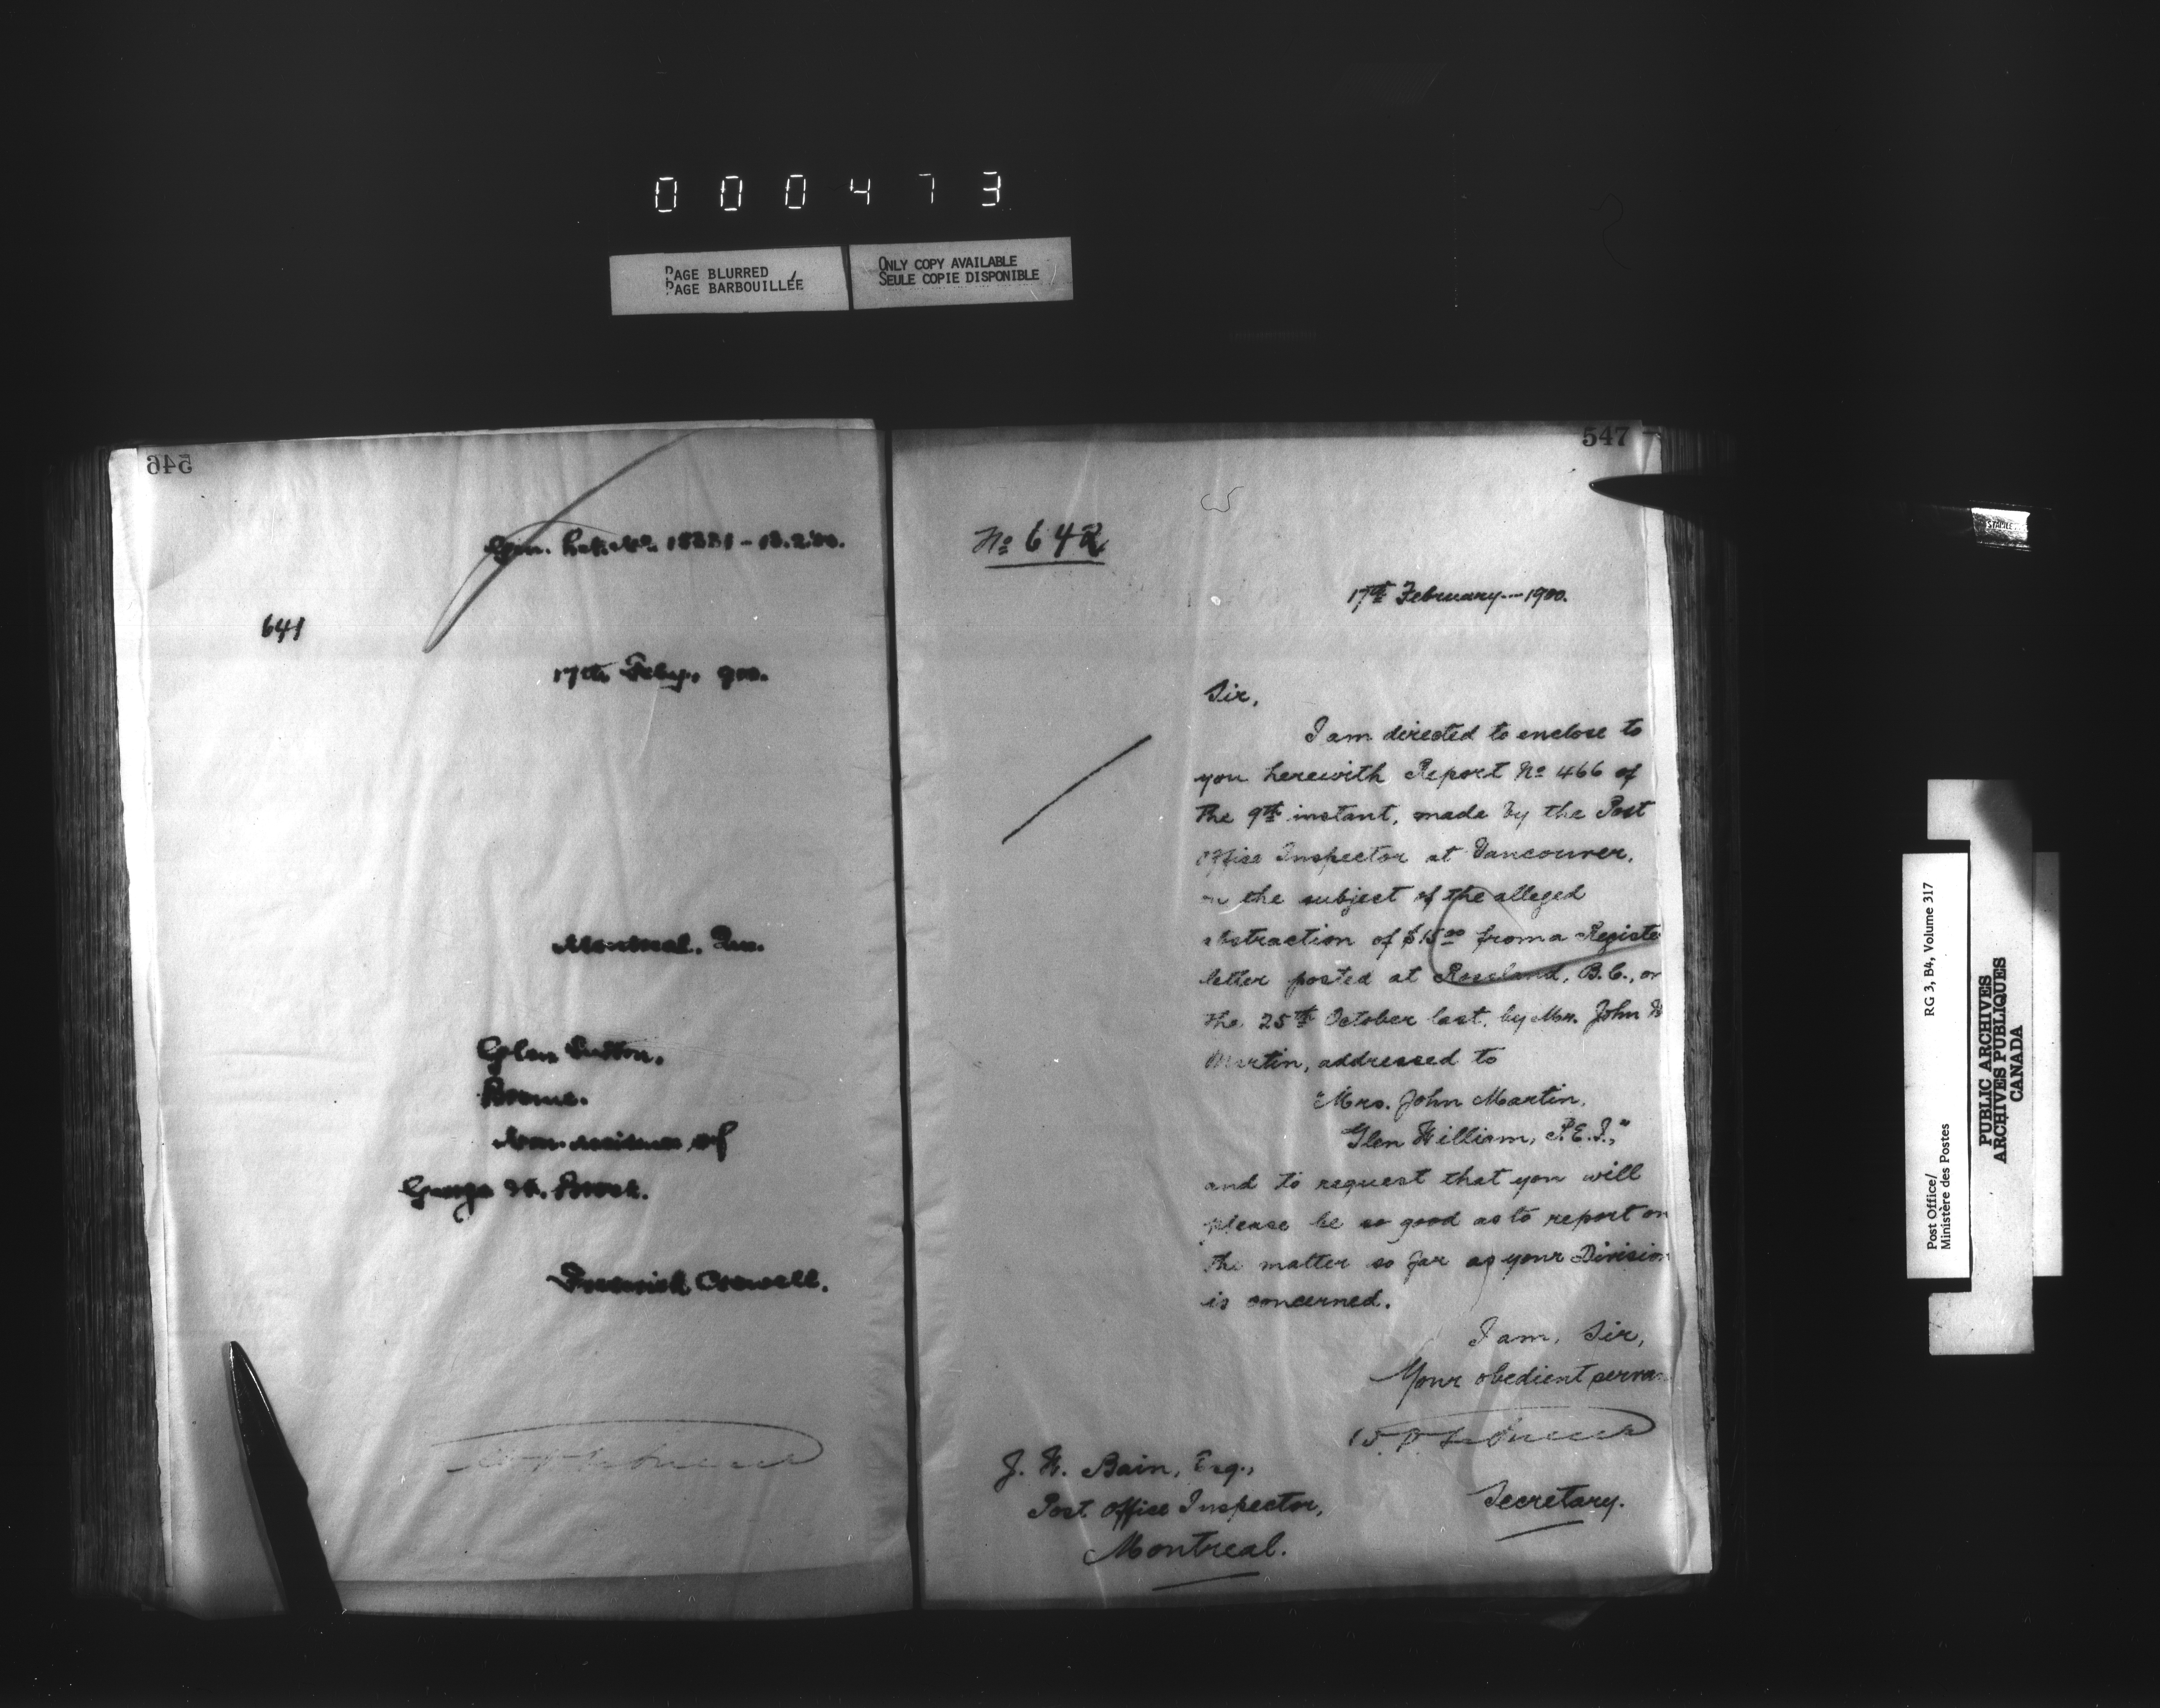 000473
PAGE BLURRED
PAGE BARBOUILLÉE
ONLY COPY AVAILABLE
SEULE COPIE DISPONIBLE
546
641
17th Feby, 900.
Montreal, Que.
Glen Sutton,
Brome.
Non-receipt of
George H. Brock.
547
No 642
17th February---1900.
Sir,
I am directed to enclose to
you herewith Report No 466 of
the 9th instant, made by the Post
Office Inspector at Vancouver,
on the subject of the alleged
abstraction of $15.00 from a Registe
letter posted at Rossland, B.C., on
the 25th October last, by Mr. John
Martin, addressed to
"Mrs. John Martin,
Glen William, P.E.I.,"
and to request that you will
please be so good as to report on
the matter so far as your Division
is concerned.
I am, Sir,
Your obedient serva
Secretary.
J. H. Bain, Esq.,
Post Office Inspector,
Montreal.
STAPLE
Post Office/
Ministère des Postes
RG 3, B4, Volume 317
PUBLIC ARCHIVES
ARCHIVES PUBLIQUES
CANADA